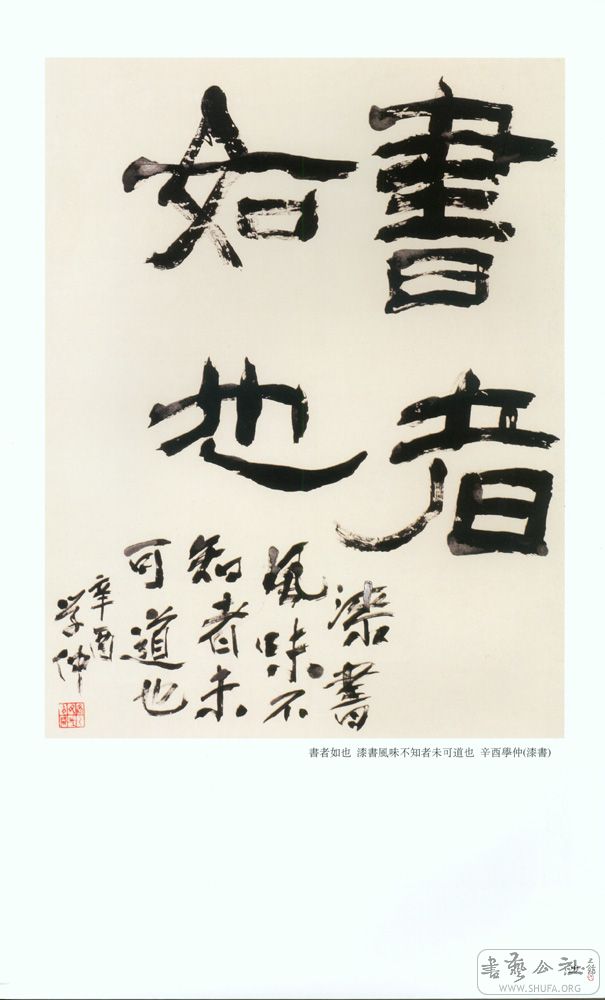 書者
如也
漆書
風味不
知者未
可道也
辛酉
学仲
書者如也 漆書風味不知者未可道也 辛酉學仲(漆書)
書藝公社
WWW.SHUFA.ORG